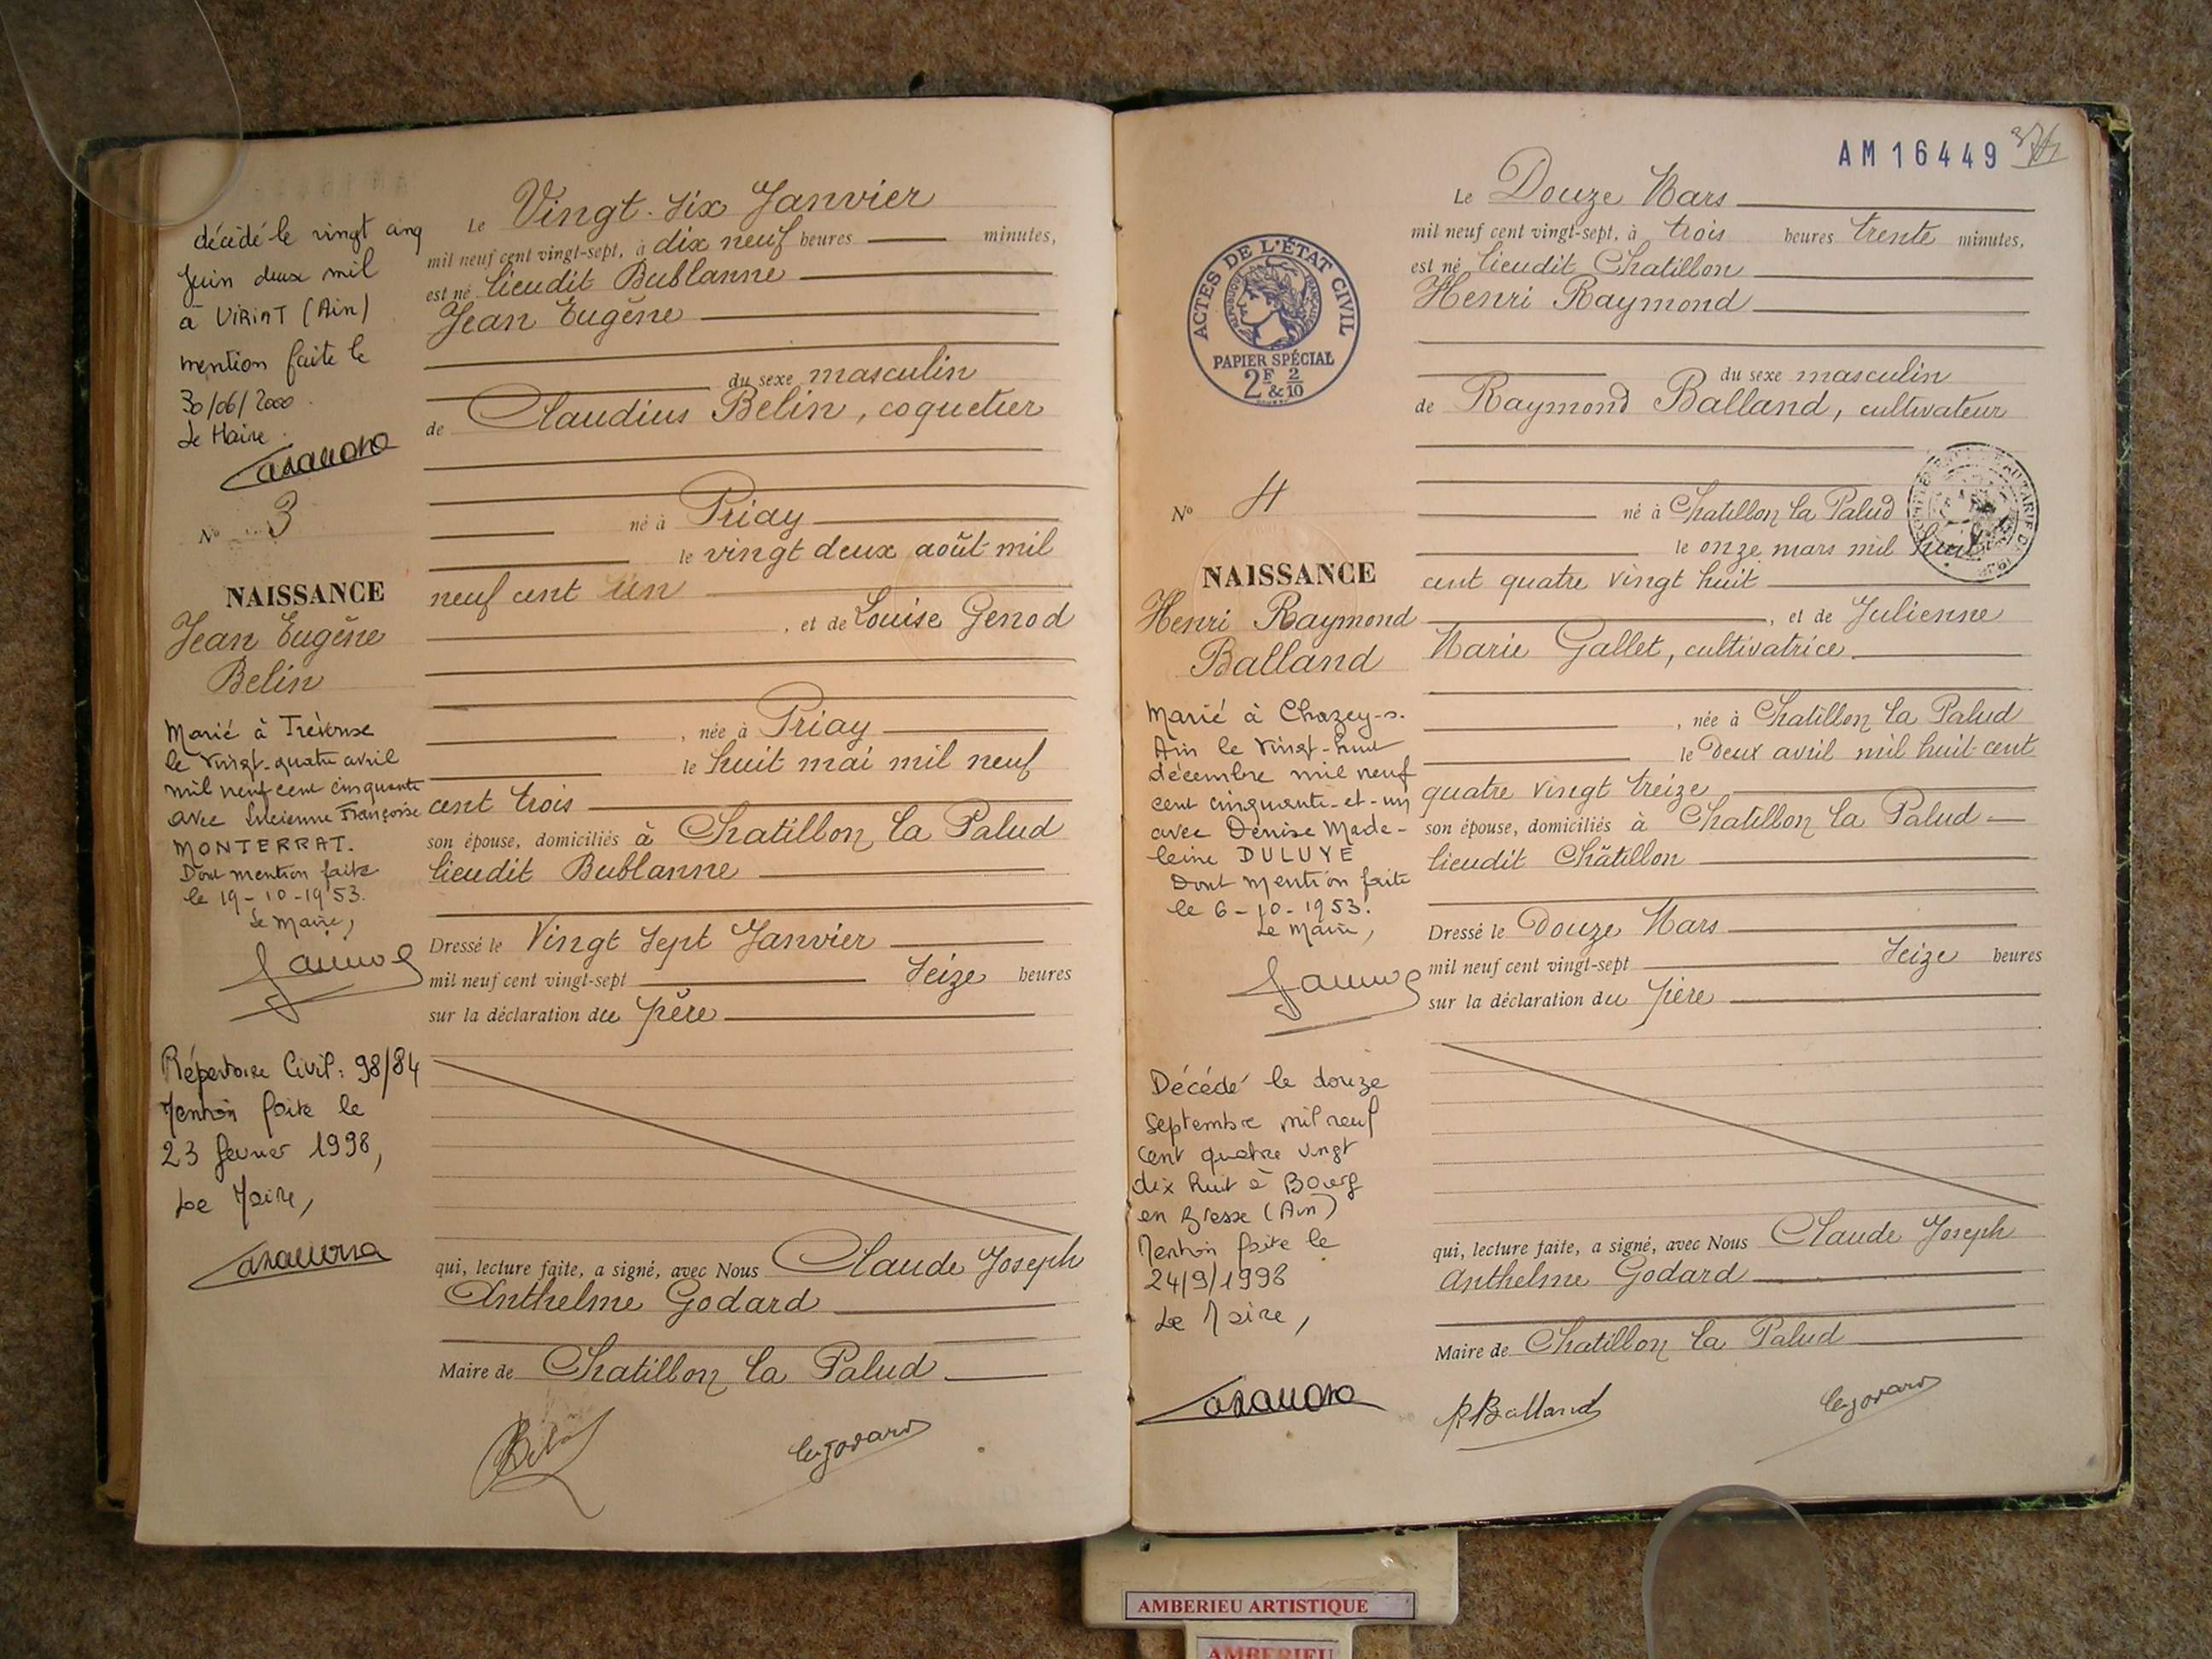 décédé le vingt cinq
Juin deux mil
à VIRIAT (Ain)
mention faite le
30/06/2000.
Le Maire.
N° 3
NAISSANCE
Jean Eugène
Belin
Marié à Tréverse
le vingt-quatre avril
mil neuf cent cinquante
avec Lucienne Françoise
MONTERRAT.
Dont mention faite
le 19-10-1953.
Le Maire,
Répertoire Civil: 98/84
Mention faite le
23 février 1998,
Le Maire,
Le Vingt-six Janvier
mil neuf cent vingt-sept, à dix neuf heures minutes,
est né lieudit Bublanne
Jean Eugène
du sexe masculin
de Claudius Belin, coquetier
né à Priay
le vingt deux août mil
neuf cent un
, et de Louise Genod
, née à Priay
le huit mai mil neuf
cent trois
son épouse, domiciliés à Chatillon la Palud
lieudit Bublanne
Dressé le Vingt sept Janvier
mil neuf cent vingt-sept Seize heures
sur la déclaration du père
qui, lecture faite, a signé, avec Nous Claude Joseph
Anthelme Godard
Maire de Chatillon la Palud
AM16449
ACTES DE L'ÉTAT CIVIL
RÉPUBLIQUE FRANÇAISE
PAPIER SPÉCIAL
2F & 2/10
N° 4
NAISSANCE
Henri Raymond
Balland
Marié à Chazey-s.
Ain le vingt-huit
décembre mil neuf
cent cinquante-et-un
avec Denise Made-
leine DULUYE
Dont mention faite
le 6-10-1953.
Le Maire,
Décédé le douze
Septembre mil neuf
cent quatre vingt
dix huit à Bourg
en Bresse (Ain)
Mention faite le
24/9/1998
Le Maire,
Le Douze Mars
mil neuf cent vingt-sept, à trois heures trente minutes,
est né lieudit Chatillon
Henri Raymond
du sexe masculin
de Raymond Balland, cultivateur
né à Chatillon la Palud
le onze mars mil huit
cent quatre vingt huit
, et de Julienne
Marie Gallet, cultivatrice
, née à Chatillon la Palud
le Deux avril mil huit cent
quatre vingt treize
son épouse, domiciliés à Chatillon la Palud
lieudit Châtillon
Dressé le Douze Mars
mil neuf cent vingt-sept Seize heures
sur la déclaration du père
qui, lecture faite, a signé, avec Nous Claude Joseph
Anthelme Godard
Maire de Chatillon la Palud
R. Balland
AMBERIEU ARTISTIQUE
AMBERIEU